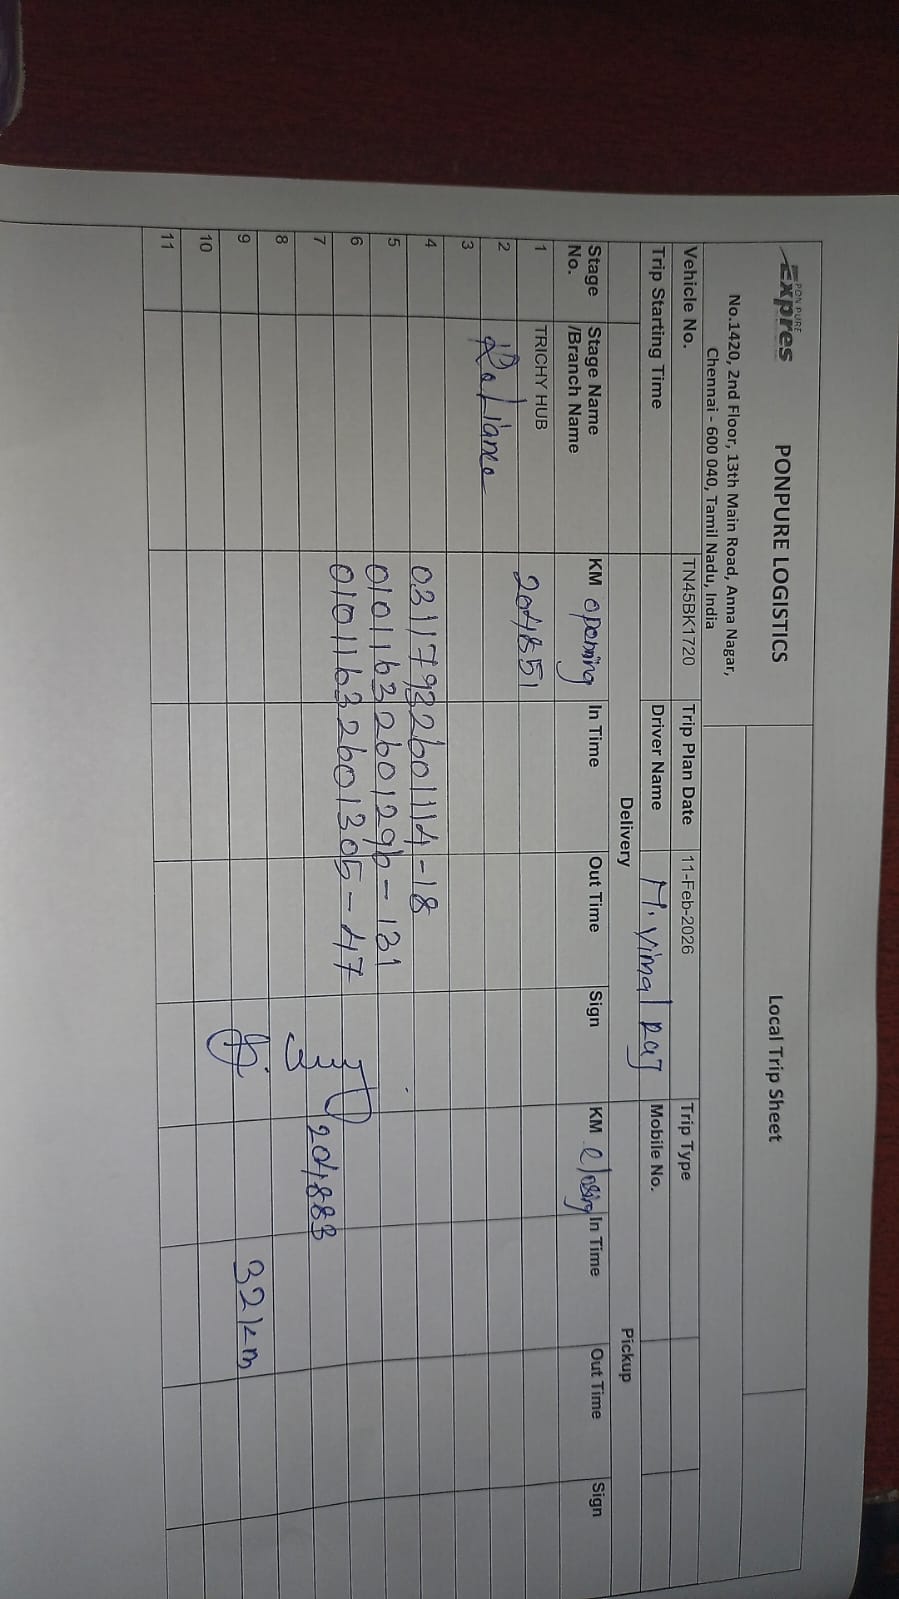 PONPURE
Expres
PONPURE LOGISTICS
Local Trip Sheet
No.1420, 2nd Floor, 13th Main Road, Anna Nagar,
Chennai - 600 040, Tamil Nadu, India
Vehicle No. TN45BK1720 Trip Plan Date 11-Feb-2026 Trip Type
Trip Starting Time Driver Name M. Vimal Raj Mobile No.
Delivery Pickup
Stage No. Stage Name /Branch Name KM opening In Time Out Time Sign KM closing In Time Out Time Sign
1 TRICHY HUB 204851
2 Reliance
3
4 03117932601114-18
5 01011632601296-131
6 01011632601305-47
7 204883
8
9 32km
10
11